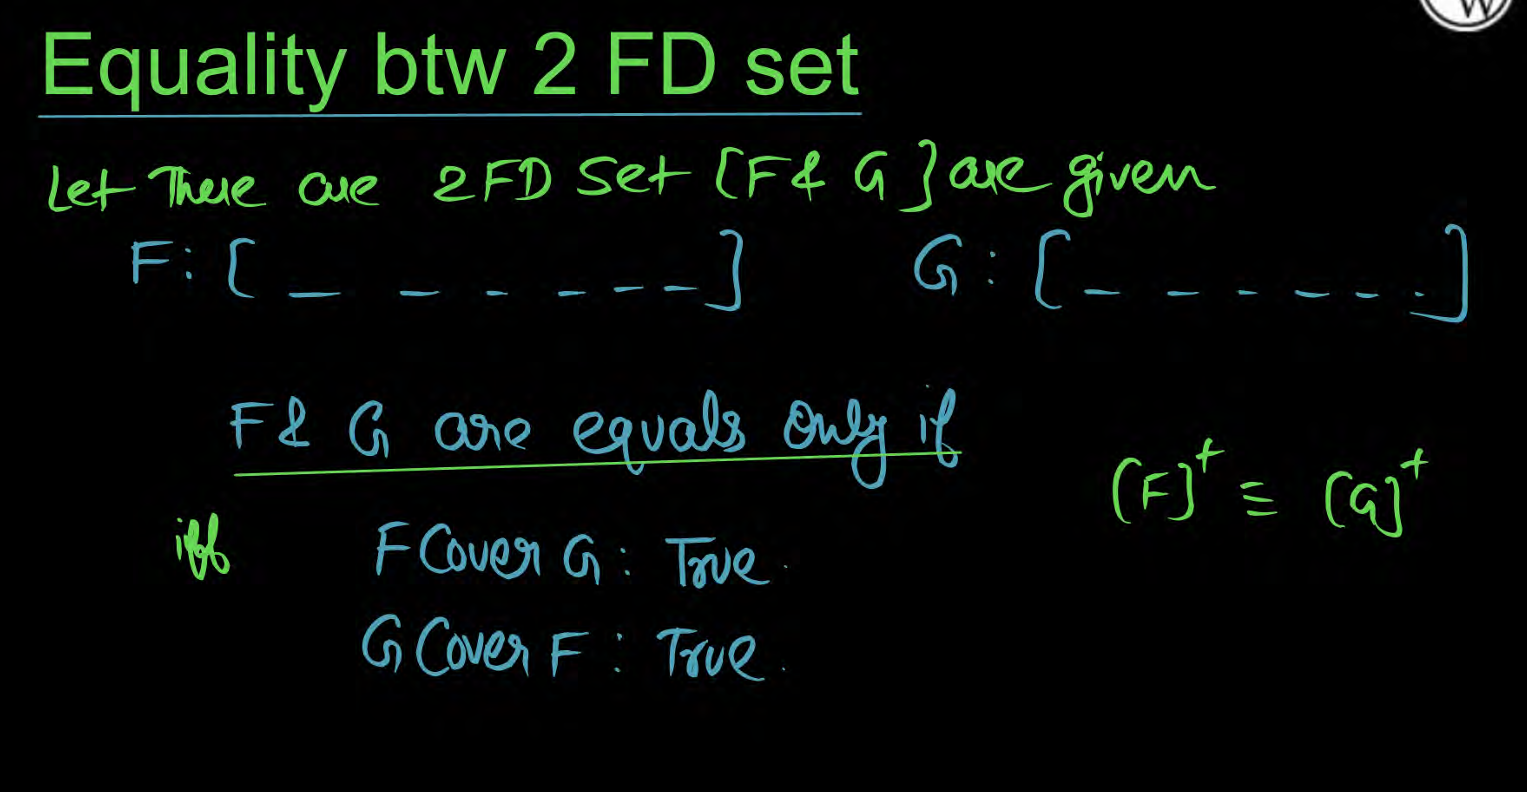 W
Equality btw 2 FD set
Let There are 2 FD Set [F & G] are given
F: [ _ _ _ _ _ _ ] G: [ _ _ _ _ _ _ ]
F & G are equals only if
[F]⁺ ≡ [G]⁺
iff F Cover G: True.
G Cover F: True.